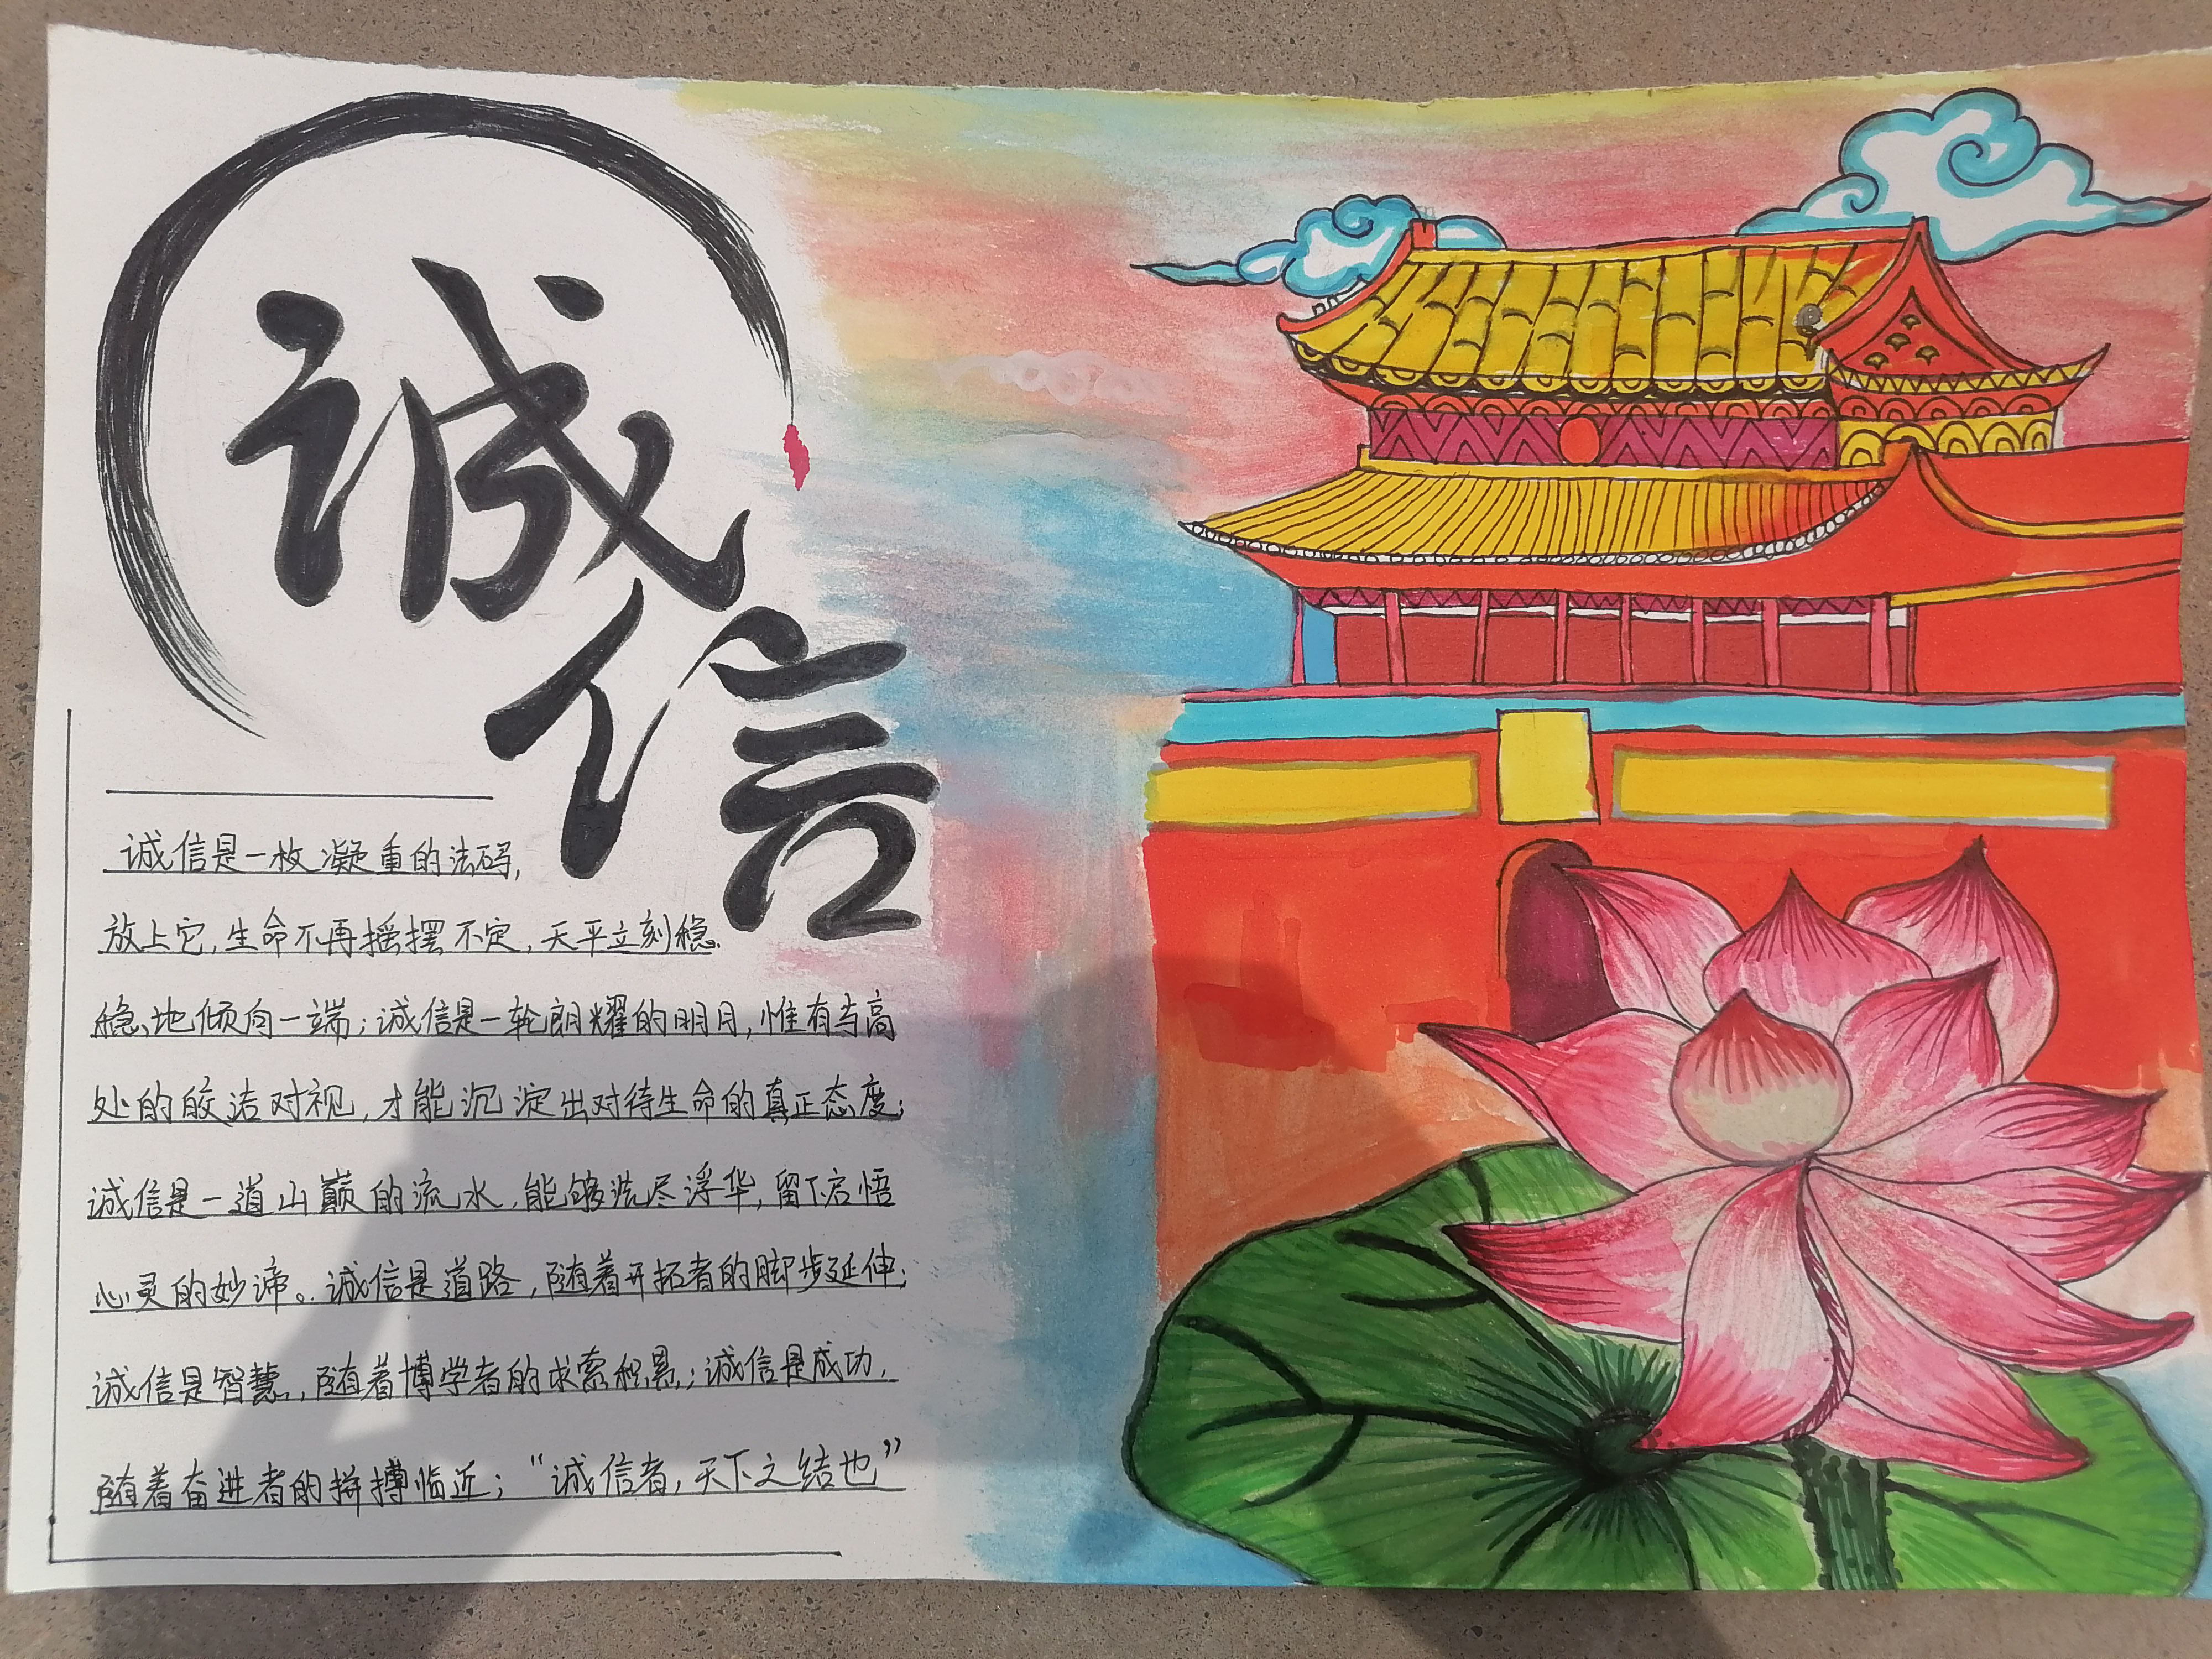 诚信
诚信是一枚凝重的法码，
放上它，生命不再摇摆不定，天平立刻稳
稳地倾向一端；诚信是一轮朗耀的明月，惟有与高
处的皎洁对视，才能沉淀出对待生命的真正态度；
诚信是一道山巅的流水，能够洗尽浮华，留下启悟
心灵的妙谛。诚信是道路，随着开拓者的脚步延伸；
诚信是智慧，随着博学者的求索积累；诚信是成功，
随着奋进者的拼搏临近；“诚信者，天下之结也”